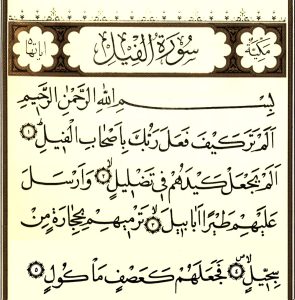 مكية سورة الفيل اياتها
بسم الله الرحمن الرحيم
الم تر كيف فعل ربك باصحاب الفيل ١
الم يجعل كيدهم في تضليل ٢ وارسل
عليهم طيرا ابابيل ٣ ترميهم بحجارة من
سجيل ٤ فجعلهم كعصف ماكول ٥